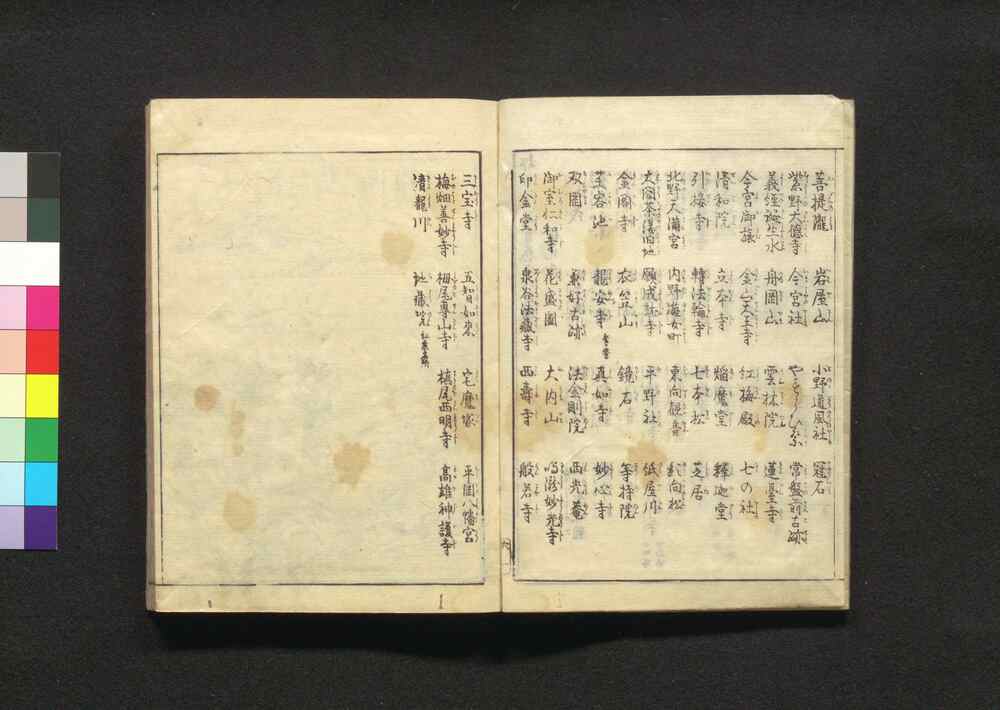 菩提瀧 岩屋山 小野道風社 冠石
紫野大徳寺 今宮社 常盤前古跡
義経誕生水 舟岡山 雲林院 蓮臺寺
今宮御旅 金山天王寺 紅梅殿 七の社
清和院 立本寺 焔魔堂 釋迦堂
引接寺 轉法輪寺 七本松 芝居
北野天満宮 内野遊女町 東向観音 影向松
大閤茶湯旧地 願成就寺 平野社 紙屋川
金閣寺 衣笠山 鏡石 等持院
龍安寺 真如寺 妙心寺
双岡 兼好古跡 法金剛院 西光菴
御室仁和寺 花盛圖 大内山 鳴瀧妙光寺
印金堂 泉谷法蔵寺 西壽寺 般若寺
三宝寺 五智如來 宅魔塚 平岡八幡宮
梅畑善妙寺 栂尾高山寺 槙尾西明寺 高雄神護寺
清瀧川 地蔵院